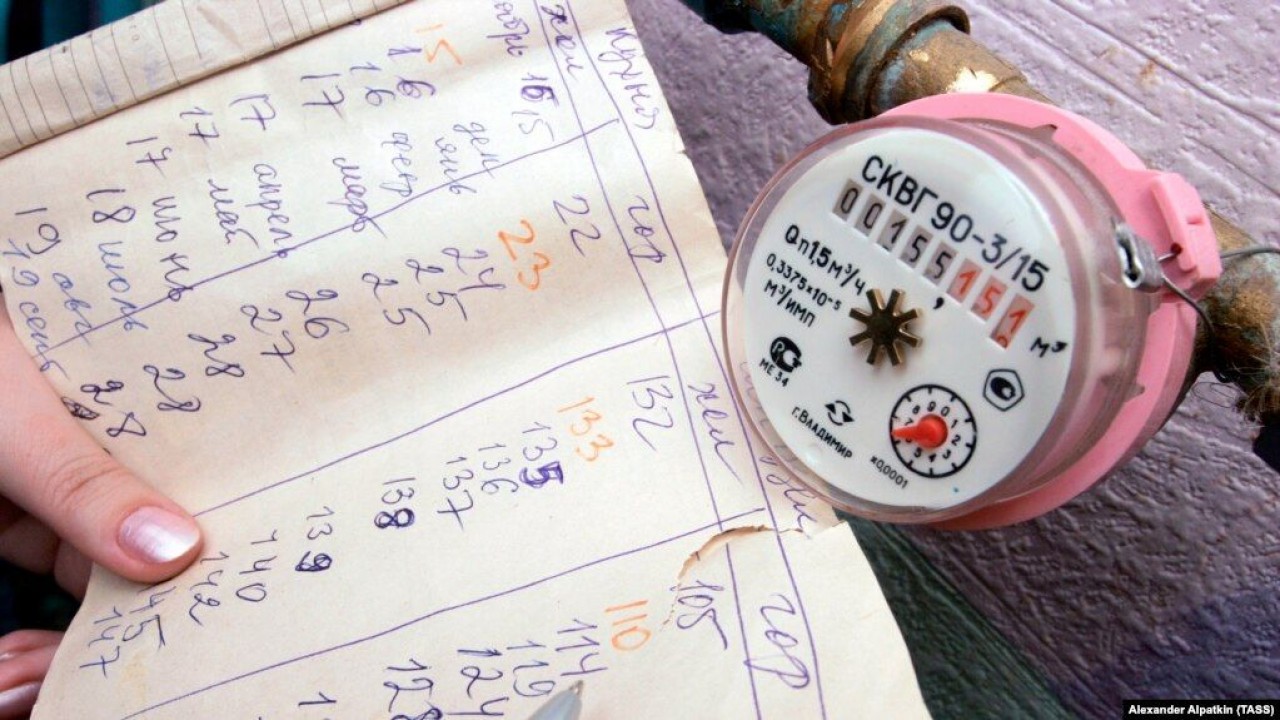 кухня
хол
гор
хол
гор
15
15
16 ден
16 янв
17 февр
март
17 апрель
17 май
17 июнь
18 июль
19 авг
19 сент
22
23
24
25
25
26
27
28
28
28
132
133
135
136
137
138
139
140
142
145
147
105
110
114
119
124
128
СКВГ90-3/15
00155,151 м³
Qп1,5м³/ч
0,3375*10⁻⁵
м³/имп
МЕ 34
г.Владимир
9 0 1 2 3 4 5 6 7 8
x0,0001
Alexander Alpatkin (TASS)